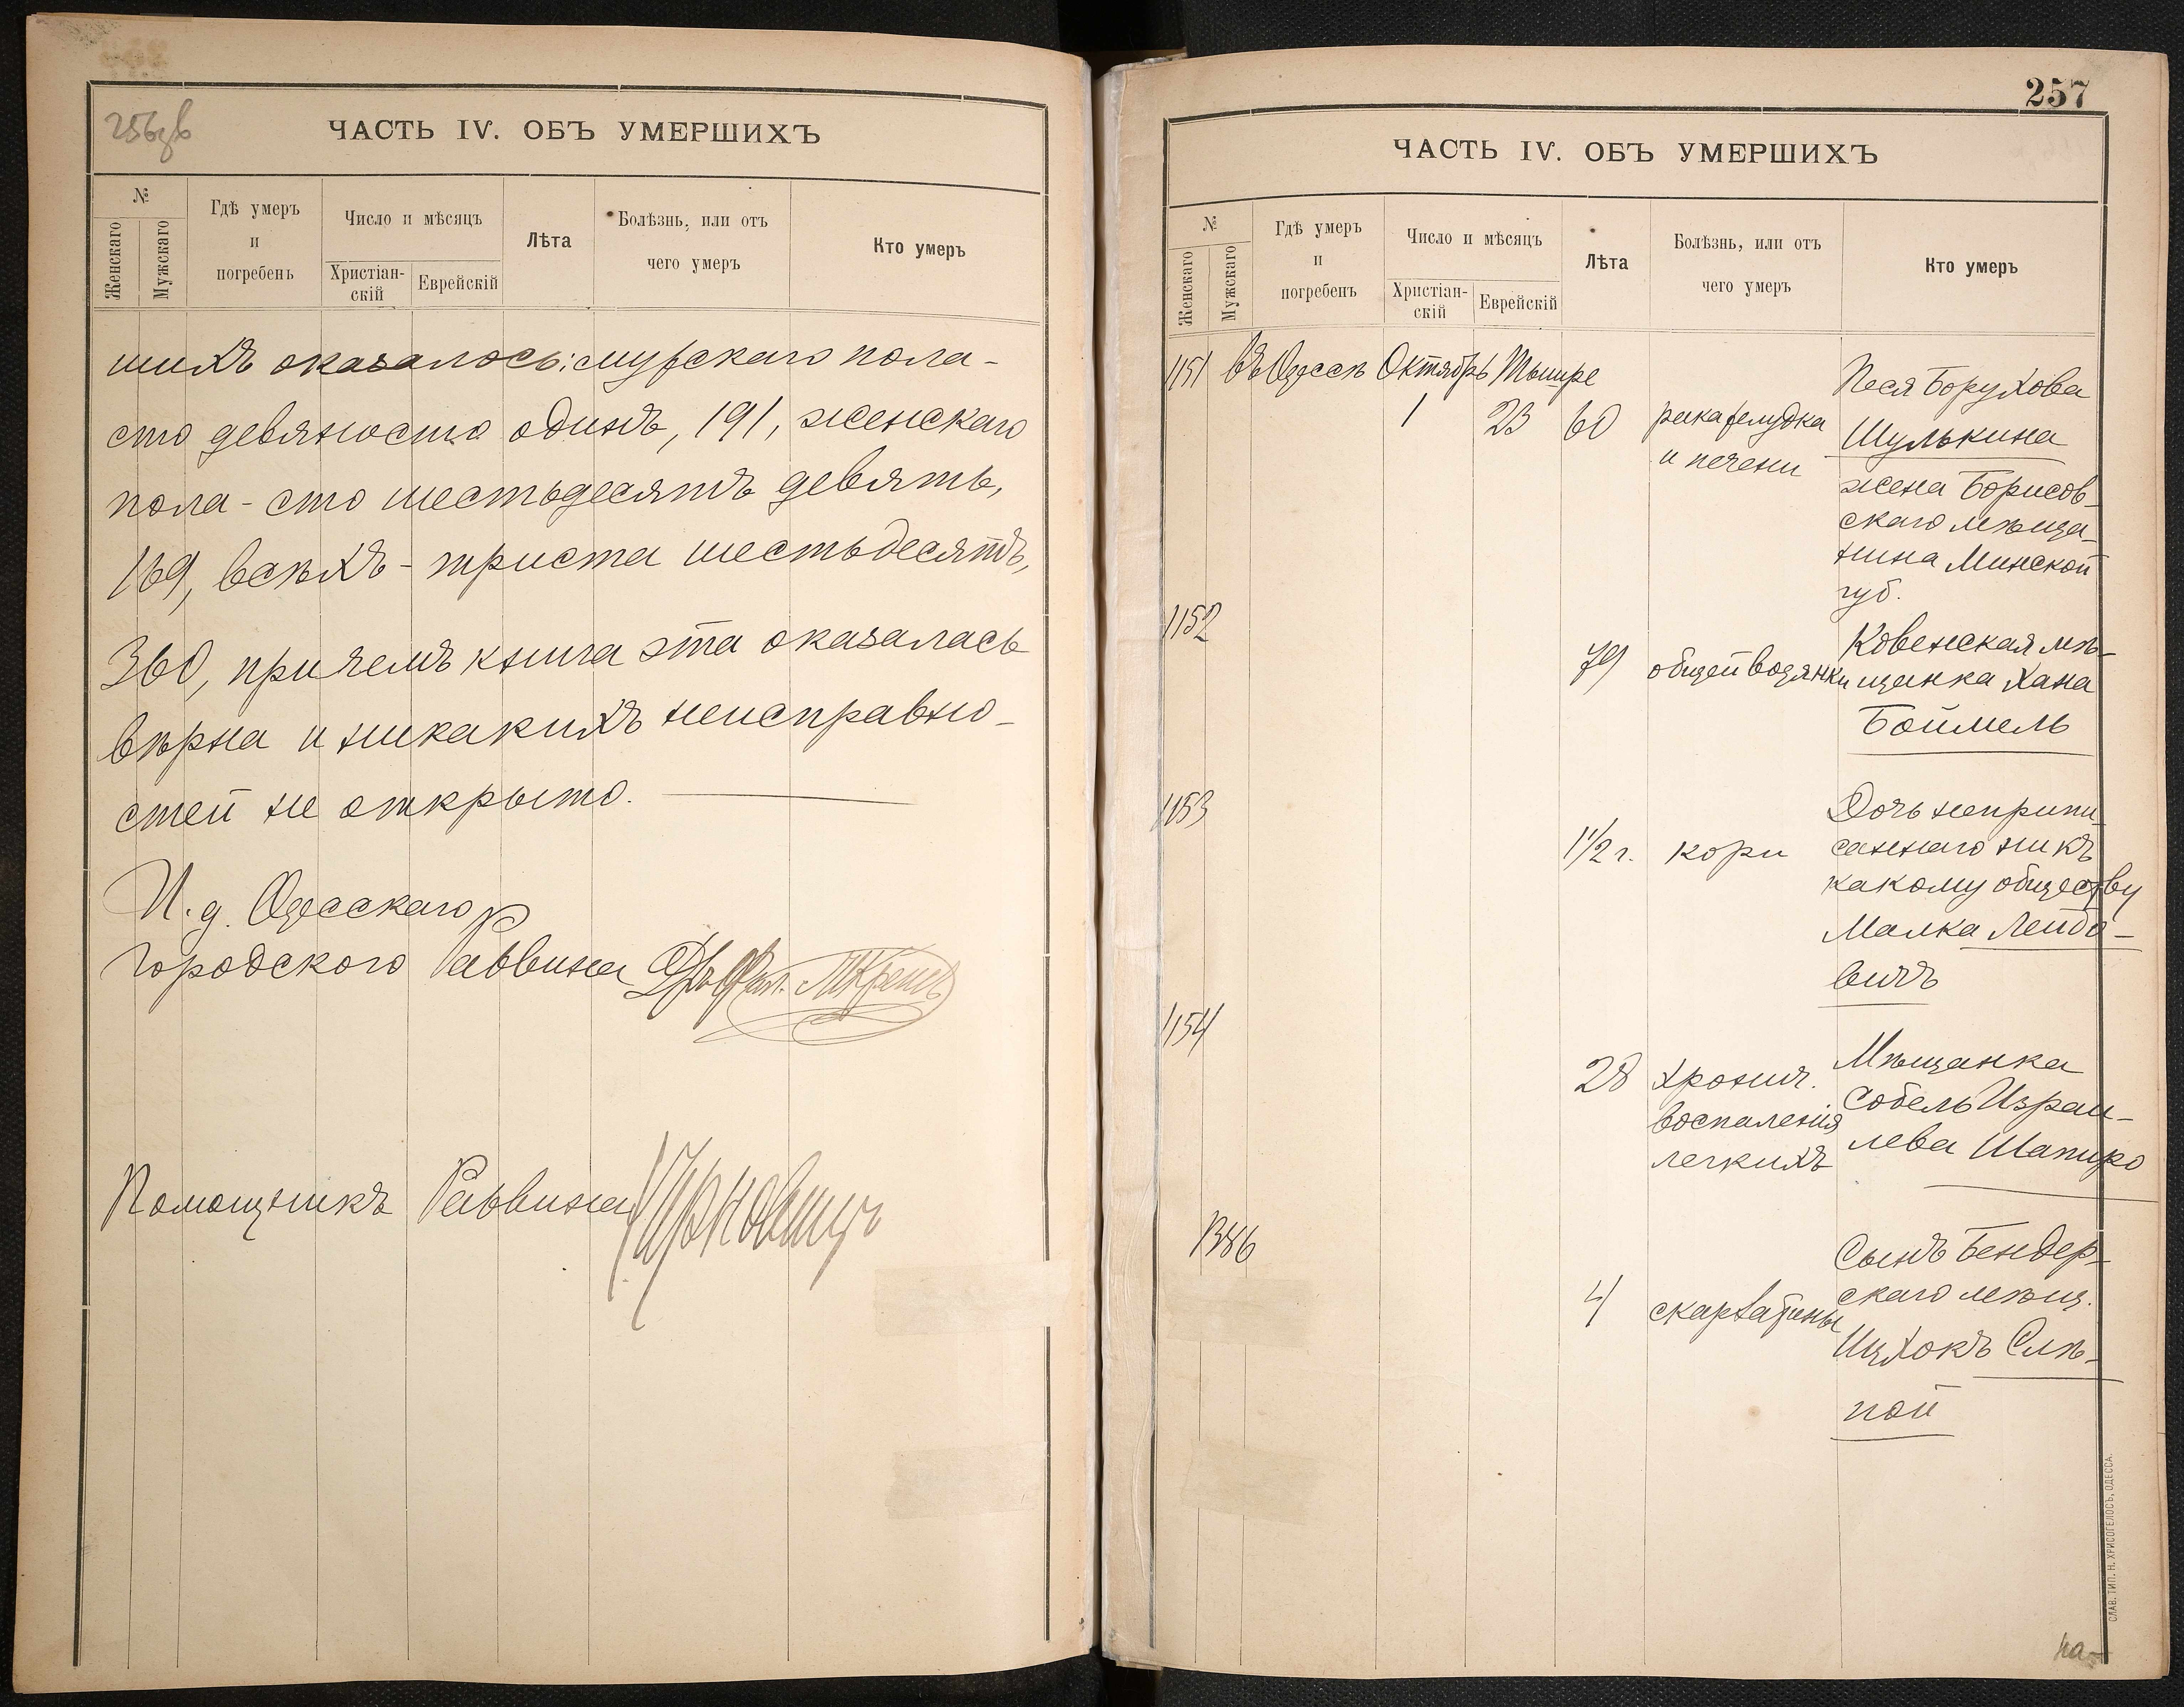 256 об
ЧАСТЬ IV. ОБЪ УМЕРШИХЪ
№
Женскаго
Мужскаго
Гдѣ умеръ
и
погребенъ
Число и мѣсяцъ
Христіан-
скій
Еврейскій
Лѣта
Болѣзнь, или отъ
чего умеръ
Кто умеръ
шихъ оказалось: мужскаго пола -
сто девяносто одинъ, 191, женскаго
пола - сто шестьдесятъ девять,
169, всѣхъ - триста шестьдесятъ,
360, причемъ книга эта оказалась
вѣрна и никакихъ неисправно-
стей не открыто.
И. д. Одесскаго
Городского Раввина
Помощникъ Раввина
257
ЧАСТЬ IV. ОБЪ УМЕРШИХЪ
№
Женскаго
Мужскаго
Гдѣ умеръ
и
погребенъ
Число и мѣсяцъ
Христіан-
скій
Еврейскій
Лѣта
Болѣзнь, или отъ
чего умеръ
Кто умеръ
1151 въ Одессѣ Октябрь Тишре
1 23 60 рака желудка
и печени
Песя Борухова
Шулькина
жена Борисов-
скаго мѣща-
нина Минской
губ.
1152
79 общей водянки
Ковенская мѣ-
щанка Хана
Боймель
1153
1 1/2 г. кори
Дочь неприпи-
саннаго ни къ
какому обществу
Малка Лейбо-
вичъ
1154
28 хронич.
воспаленія
легкихъ
Мѣщанка
Собель Израи-
лева Шапиро
1386
4 скарлатины
Сынъ Бендер-
скаго мѣщ.
Ицхокъ Слѣ-
пой
СЛАВ. ТИП. Н. ХРИСОГЕЛОСЪ, ОДЕССА.
на-